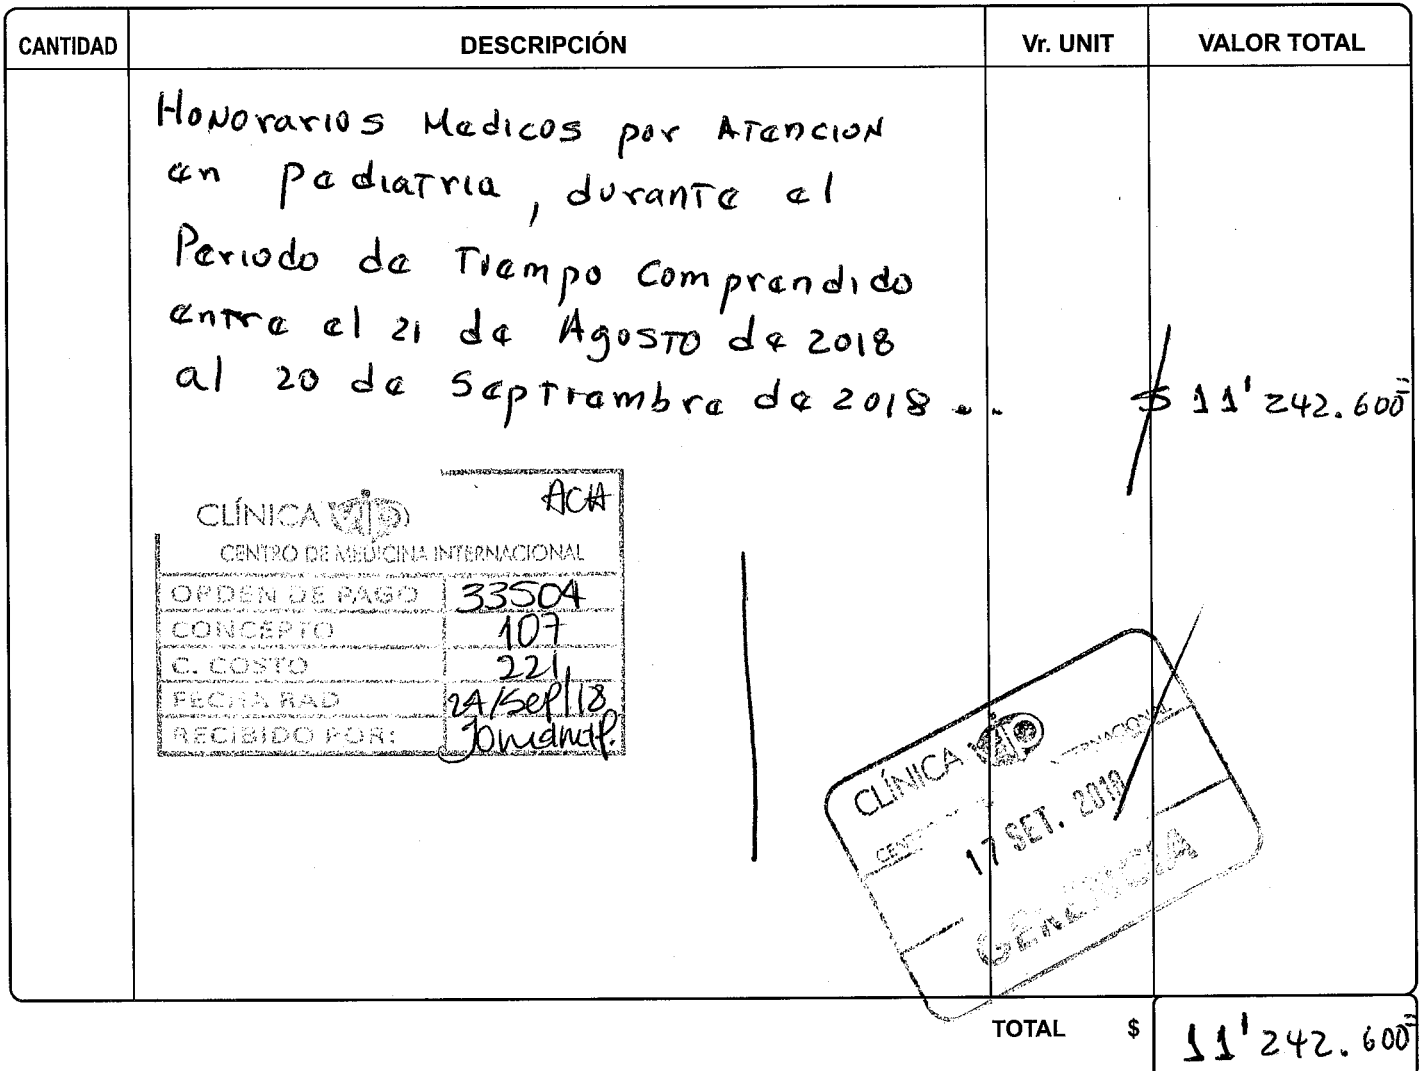 CANTIDAD DESCRIPCIÓN Vr. UNIT VALOR TOTAL
Honorarios Medicos por Atencion
en pediatria, durante el
Periodo de Tiempo Comprendido
entre el 21 de Agosto de 2018
al 20 de Septiembre de 2018 ... $ 11'242.600=
ACIA
CLÍNICA VIP
CENTRO DE MEDICINA INTERNACIONAL
ORDEN DE PAGO 33504
CONCEPTO 107
C. COSTO 221
FECHA RAD 24/Sep/18
RECIBIDO POR:
CLÍNICA VIP
INTERNACIONAL
17 SET. 2018
GERENCIA
TOTAL $ 11'242.600=